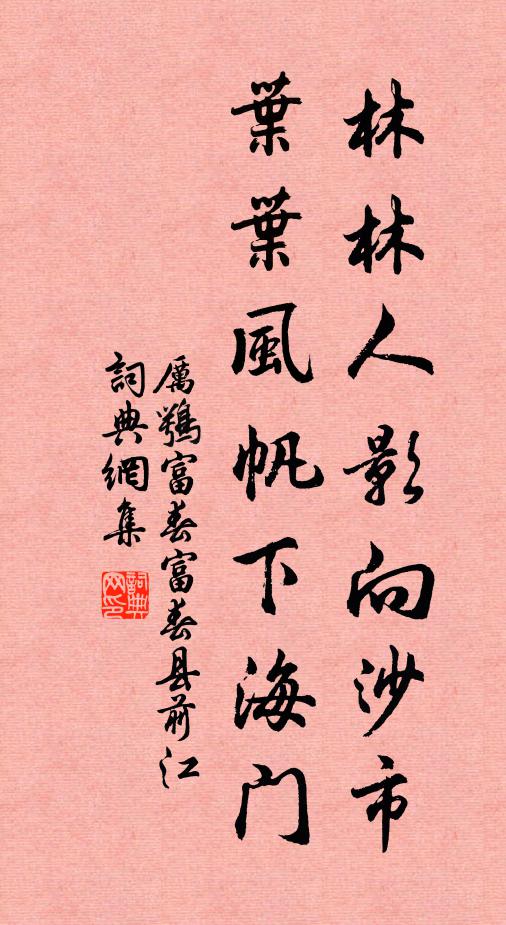 林林人影向沙市
葉葉風帆下海門
厲鶚富春富春县前江
詞典網集
詞典网印